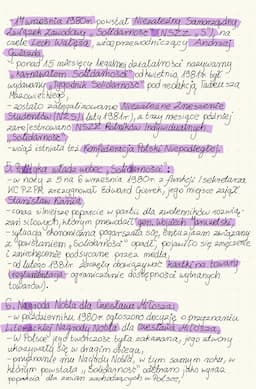 17 września 1980r. powstał Niezależny Samorządny
Związek Zawodowy „Solidarność" (NSZZ „S") na
czele Lech Wałęsa, wiceprzewodniczący Andrzej
Gwiazda
- ponad 15 miesięcy legalnej działalności nazywamy
„karnawałem Solidarności" od kwietnia 1981r. był
wydawany „Tygodnik Solidarność" pod redakcją Tadeusza
Mazowieckiego,
- zostało zalegalizowane Niezależne Zrzeszenie
Studentów (NZS) luty 1981r., a trzy miesiące później
zarejestrowano NSZZ Rolników Indywidualnych
„Solidarność"
- wciąż istniała też Konfederacja Polski Niepodległej.
5. władz wobec „Solidarności":
- w nocy z 5 na 6 września 1980r. z funkcji I sekretarza
KC PZPR zrezygnował Edward Gierek, jego miejsce zajął
Stanisław Kania,
- coraz większe poparcie w partii dla zwolenników rozwią-
zań siłowych, którym przewodził gen. Wojciech Jaruzelski,
- sytuacja ekonomiczna pogarszała się, entuzjazm związany
z powstaniem „Solidarności" opadł, pojawiło się zmęczenie
i zniechęcenie podsycane przez media,
- od lutego 1981r. zaczęły obowiązywać kartki na towary
(reglamentacja - ograniczanie dostępności wybranych
towarów).
6. Nagroda Nobla dla Czesława Miłosza.
- w październiku 1980r. ogłoszono decyzję o przyznaniu
Literackiej Nagrody Nobla dla Czesława Miłosza,
- w Polsce jego twórczość była zakazana, jego utwory
ukazywały się w drugim obiegu,
- przyznanie mu Nagrody Nobla, w tym samym roku, w
którym powstała „Solidarność" odebrano jako wyraz
poparcia dla zmian zachodzących w Polsce,